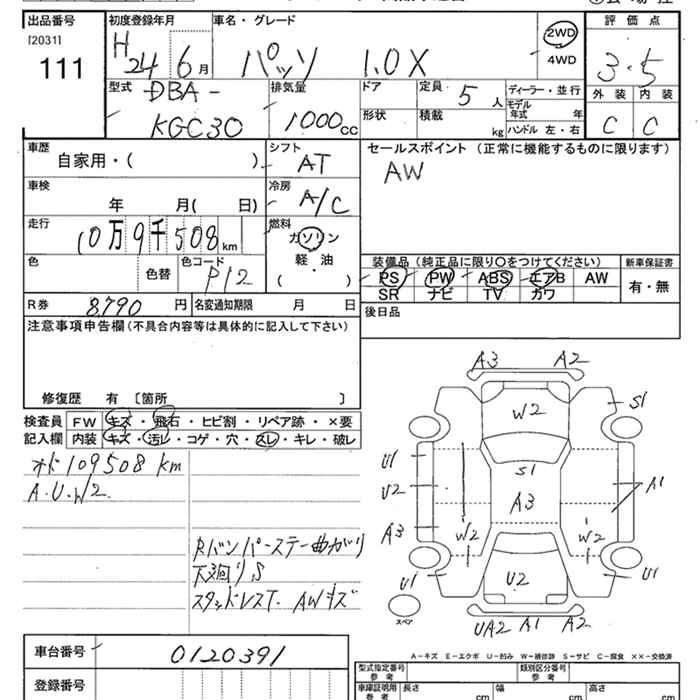 出品番号 初度登録年月 車名・グレード 評価点
[2031] H 24 6月 パッソ 1.0X 2WD 4WD 3.5
111
型式 DBA- KGC30 排気量 1000cc ドア 定員 5人 ディーラー・並行
形状 積載 kg モデル年式 年 ハンドル 左・右
外装 内装
C C
車歴 シフト セールスポイント (正常に機能するものに限ります)
自家用・( ) AT AW
車検 冷房
年 月( 日) A/C
走行 燃料
10万9千508km ガソリン
軽・油
( )
色 色替 色コード P12
装備品 (純正品に限り○をつけてください) 新車保証書
PS PW ABS エアB AW 有・無
SR ナビ TV カワ
R券 8,790 円 名変通知期限 月 日 後日品
注意事項申告欄 (不具合内容等は具体的に記入して下さい)
修復歴 有 〔箇所 〕
検査員 FW キズ・飛石・ヒビ割・リペア跡・×要
記入欄 内装 キズ・汚レ・コゲ・穴・スレ・キレ・破レ
オド109508km
A.U.W2
Rバンパーステー曲がり
下廻りS
スタッドレスT. AWキズ
A3 A2
W2 S1
U1 S1
U2 A3 A1
A3 W2 W2
U1 U2 U1
スペア UA2 A1 A2
A-キズ E-エクボ U-凹み W-補修跡 S-サビ C-腐食 ××-交換済
車台番号 0120391
型式指定番号 参考 類別区分番号 参考
登録番号 車庫証明用 参考 長さ cm 幅 cm 高さ cm